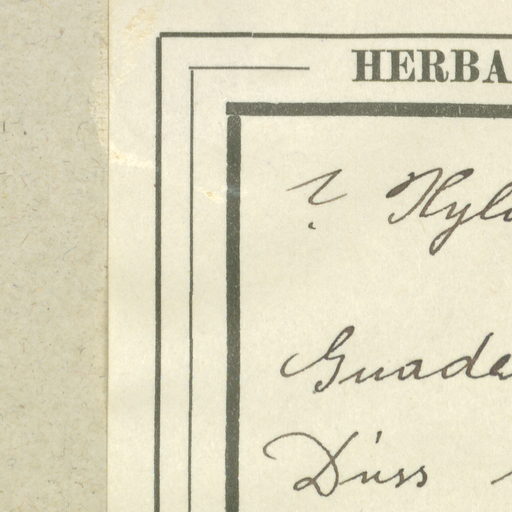 HERBA
? Hylo
Guade
Düss